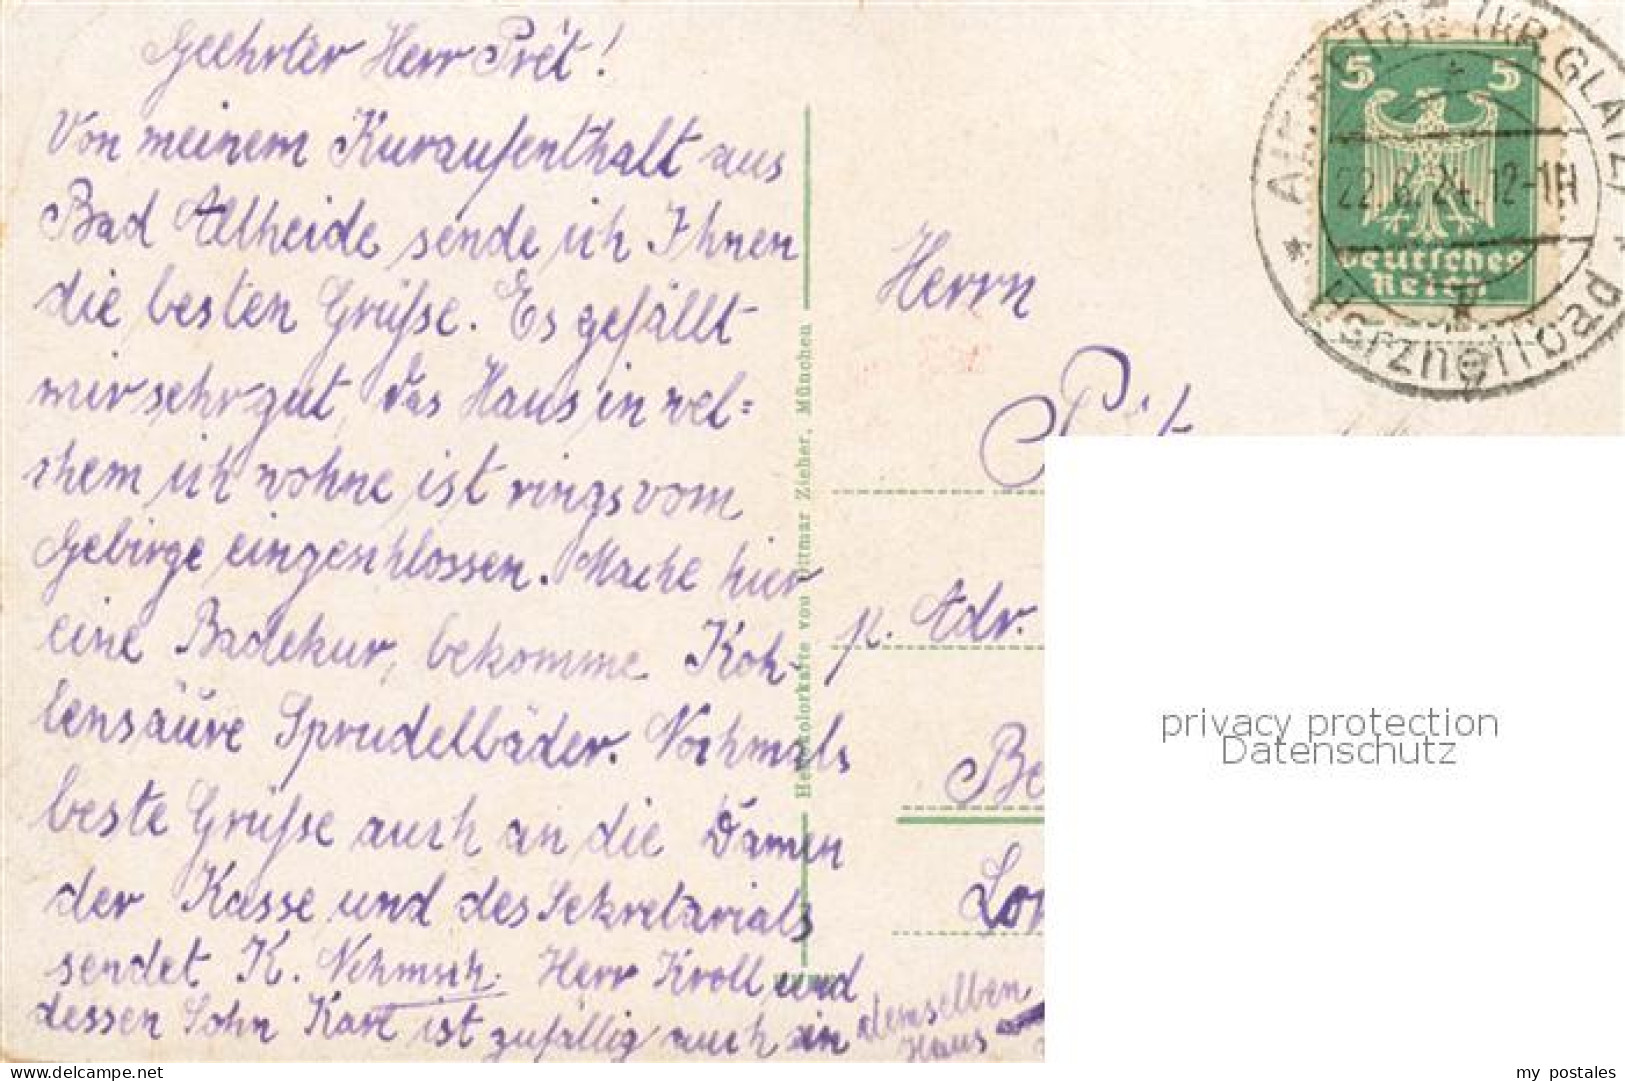 Geehrter Herr Prêt!
Von meinem Kuraufenthalt aus
Bad Altheide sende ich Ihnen
die besten Grüße. Es gefällt
mir sehr gut, das Haus in wel=
chem ich wohne ist rings vom
Gebirge eingeschlossen. Mache hier
eine Badekur, bekomme Koh-
lensäure Sprudelbäder. Nochmals
beste Grüße auch an die Damen
der Kasse und des Sekretariats
sendet K. Herr Kroll und
dessen Sohn Kart ist zufällig auch in demselben
Haus
Heliokolorkarte von Ottmar Zieher, München
5 5
Deutsches
Reich
(KR. GLATZ)
22. 24. 12-1N
Herzheilbad
Herrn
p. Adr.
Be
Lon
privacy protection
Datenschutz
delcampe.net
my_postales